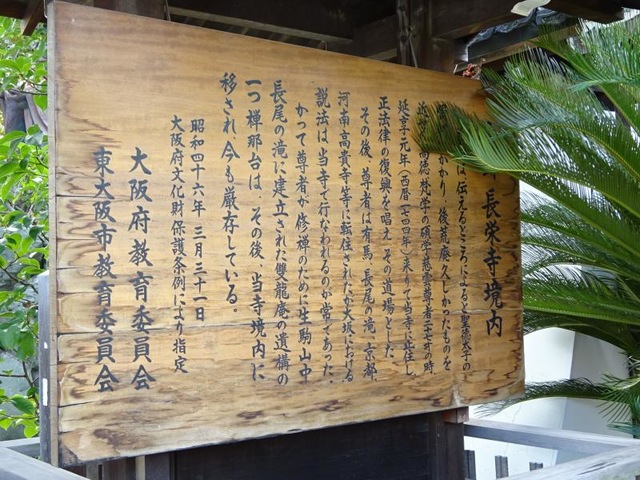 長栄寺境内
は伝えるところによると聖徳太子の
かかり、後荒廃久しかったものを
高徳、梵学の碩学慈雲尊者二十七才の時
延享元年（西暦一七四四年）来りて当寺に住し
正法律の復興を唱え、その道場とした
その後、尊者は有馬、長尾の滝、京都、
河南高貴寺等に転住されたが大坂における
説法は当寺で行なわれるのが常であった。
かつて尊者が修禅のために生駒山中
長尾の滝に建立された雙龍庵の遺構の
一つ禅那台は、その後、当寺境内に
移され今も厳存している。
昭和四十六年 三月三十一日
大阪府文化財保護条例により指定
大阪府教育委員会
東大阪市教育委員会